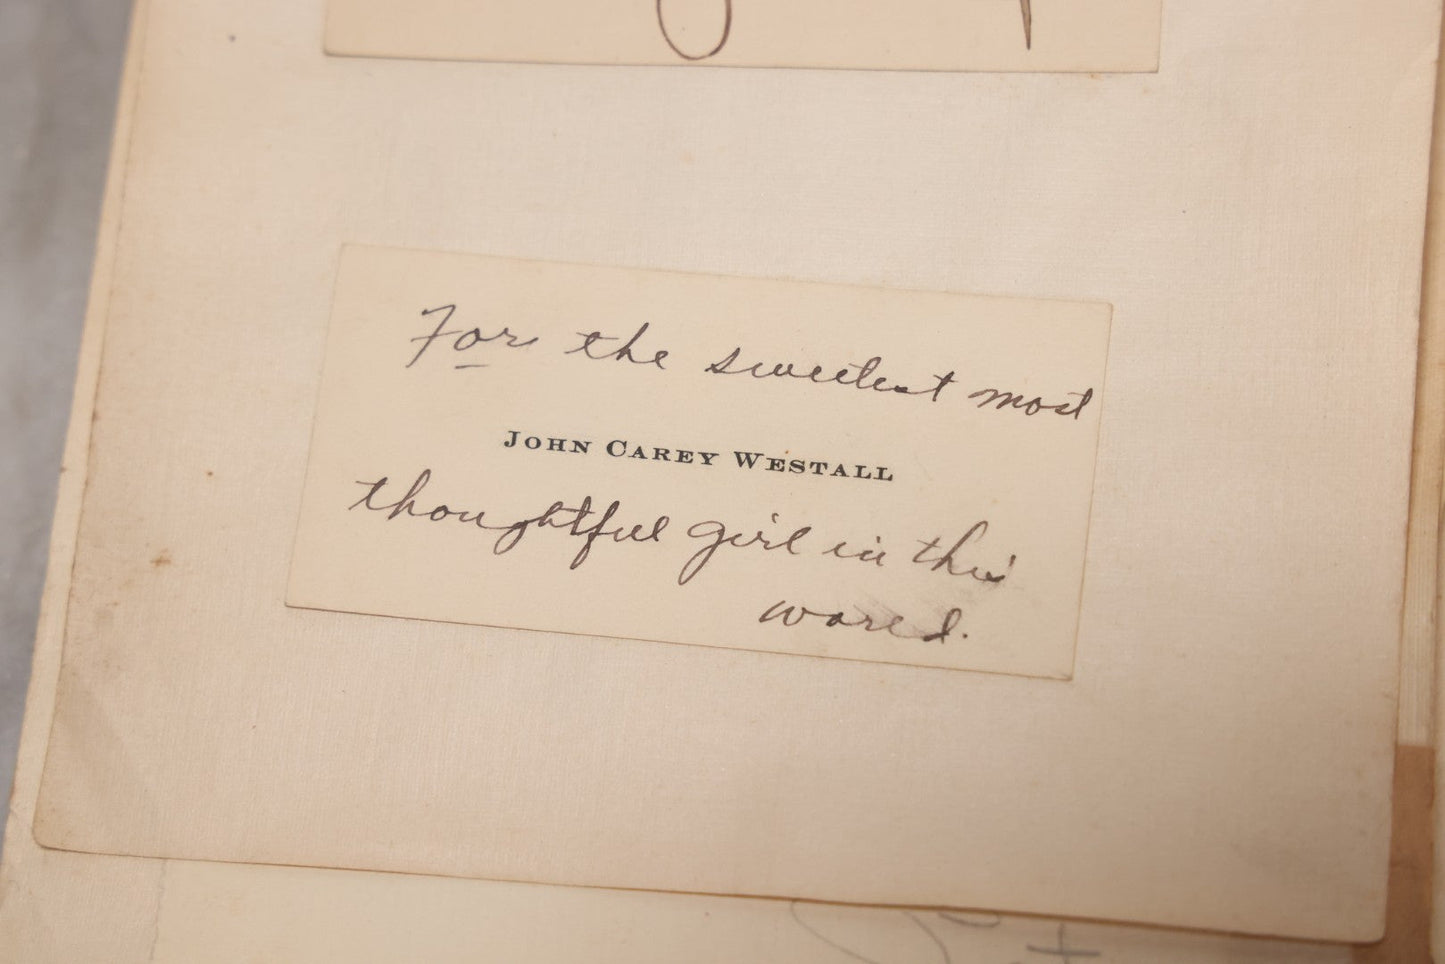 For the sweetest most
JOHN CAREY WESTALL
thoughtful girl in this
world.